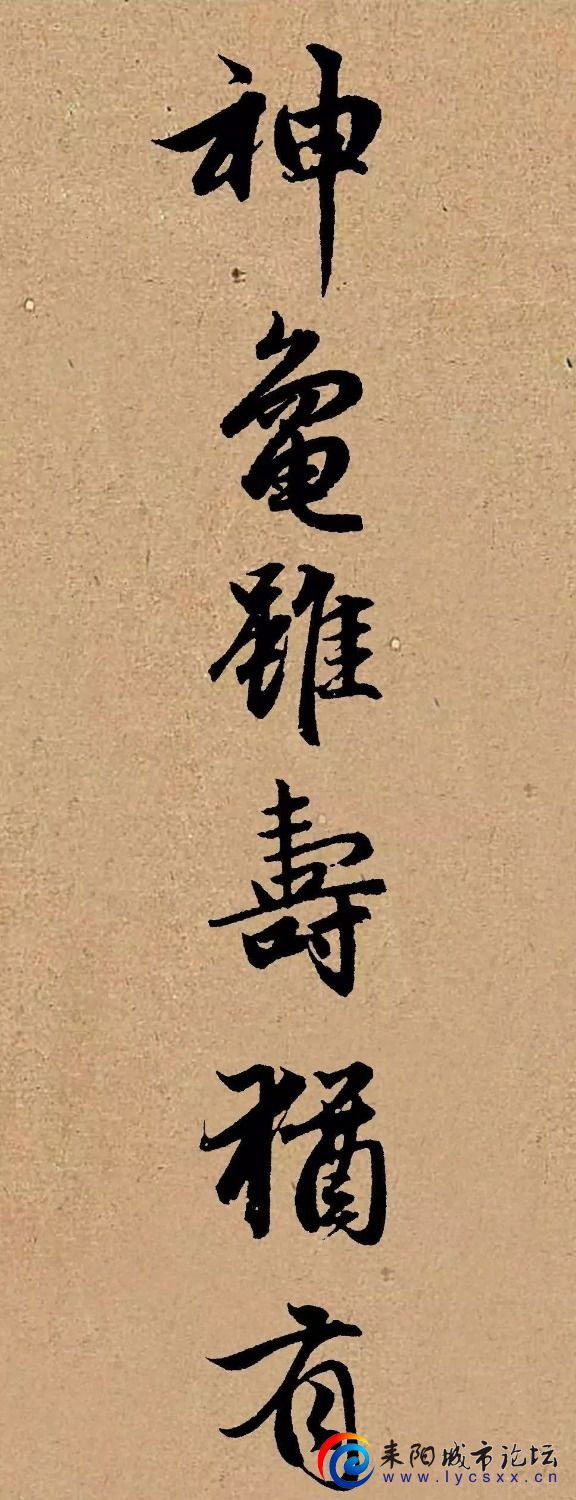 神龜雖壽猶有
耒阳城市论坛
www.lycsxx.cn